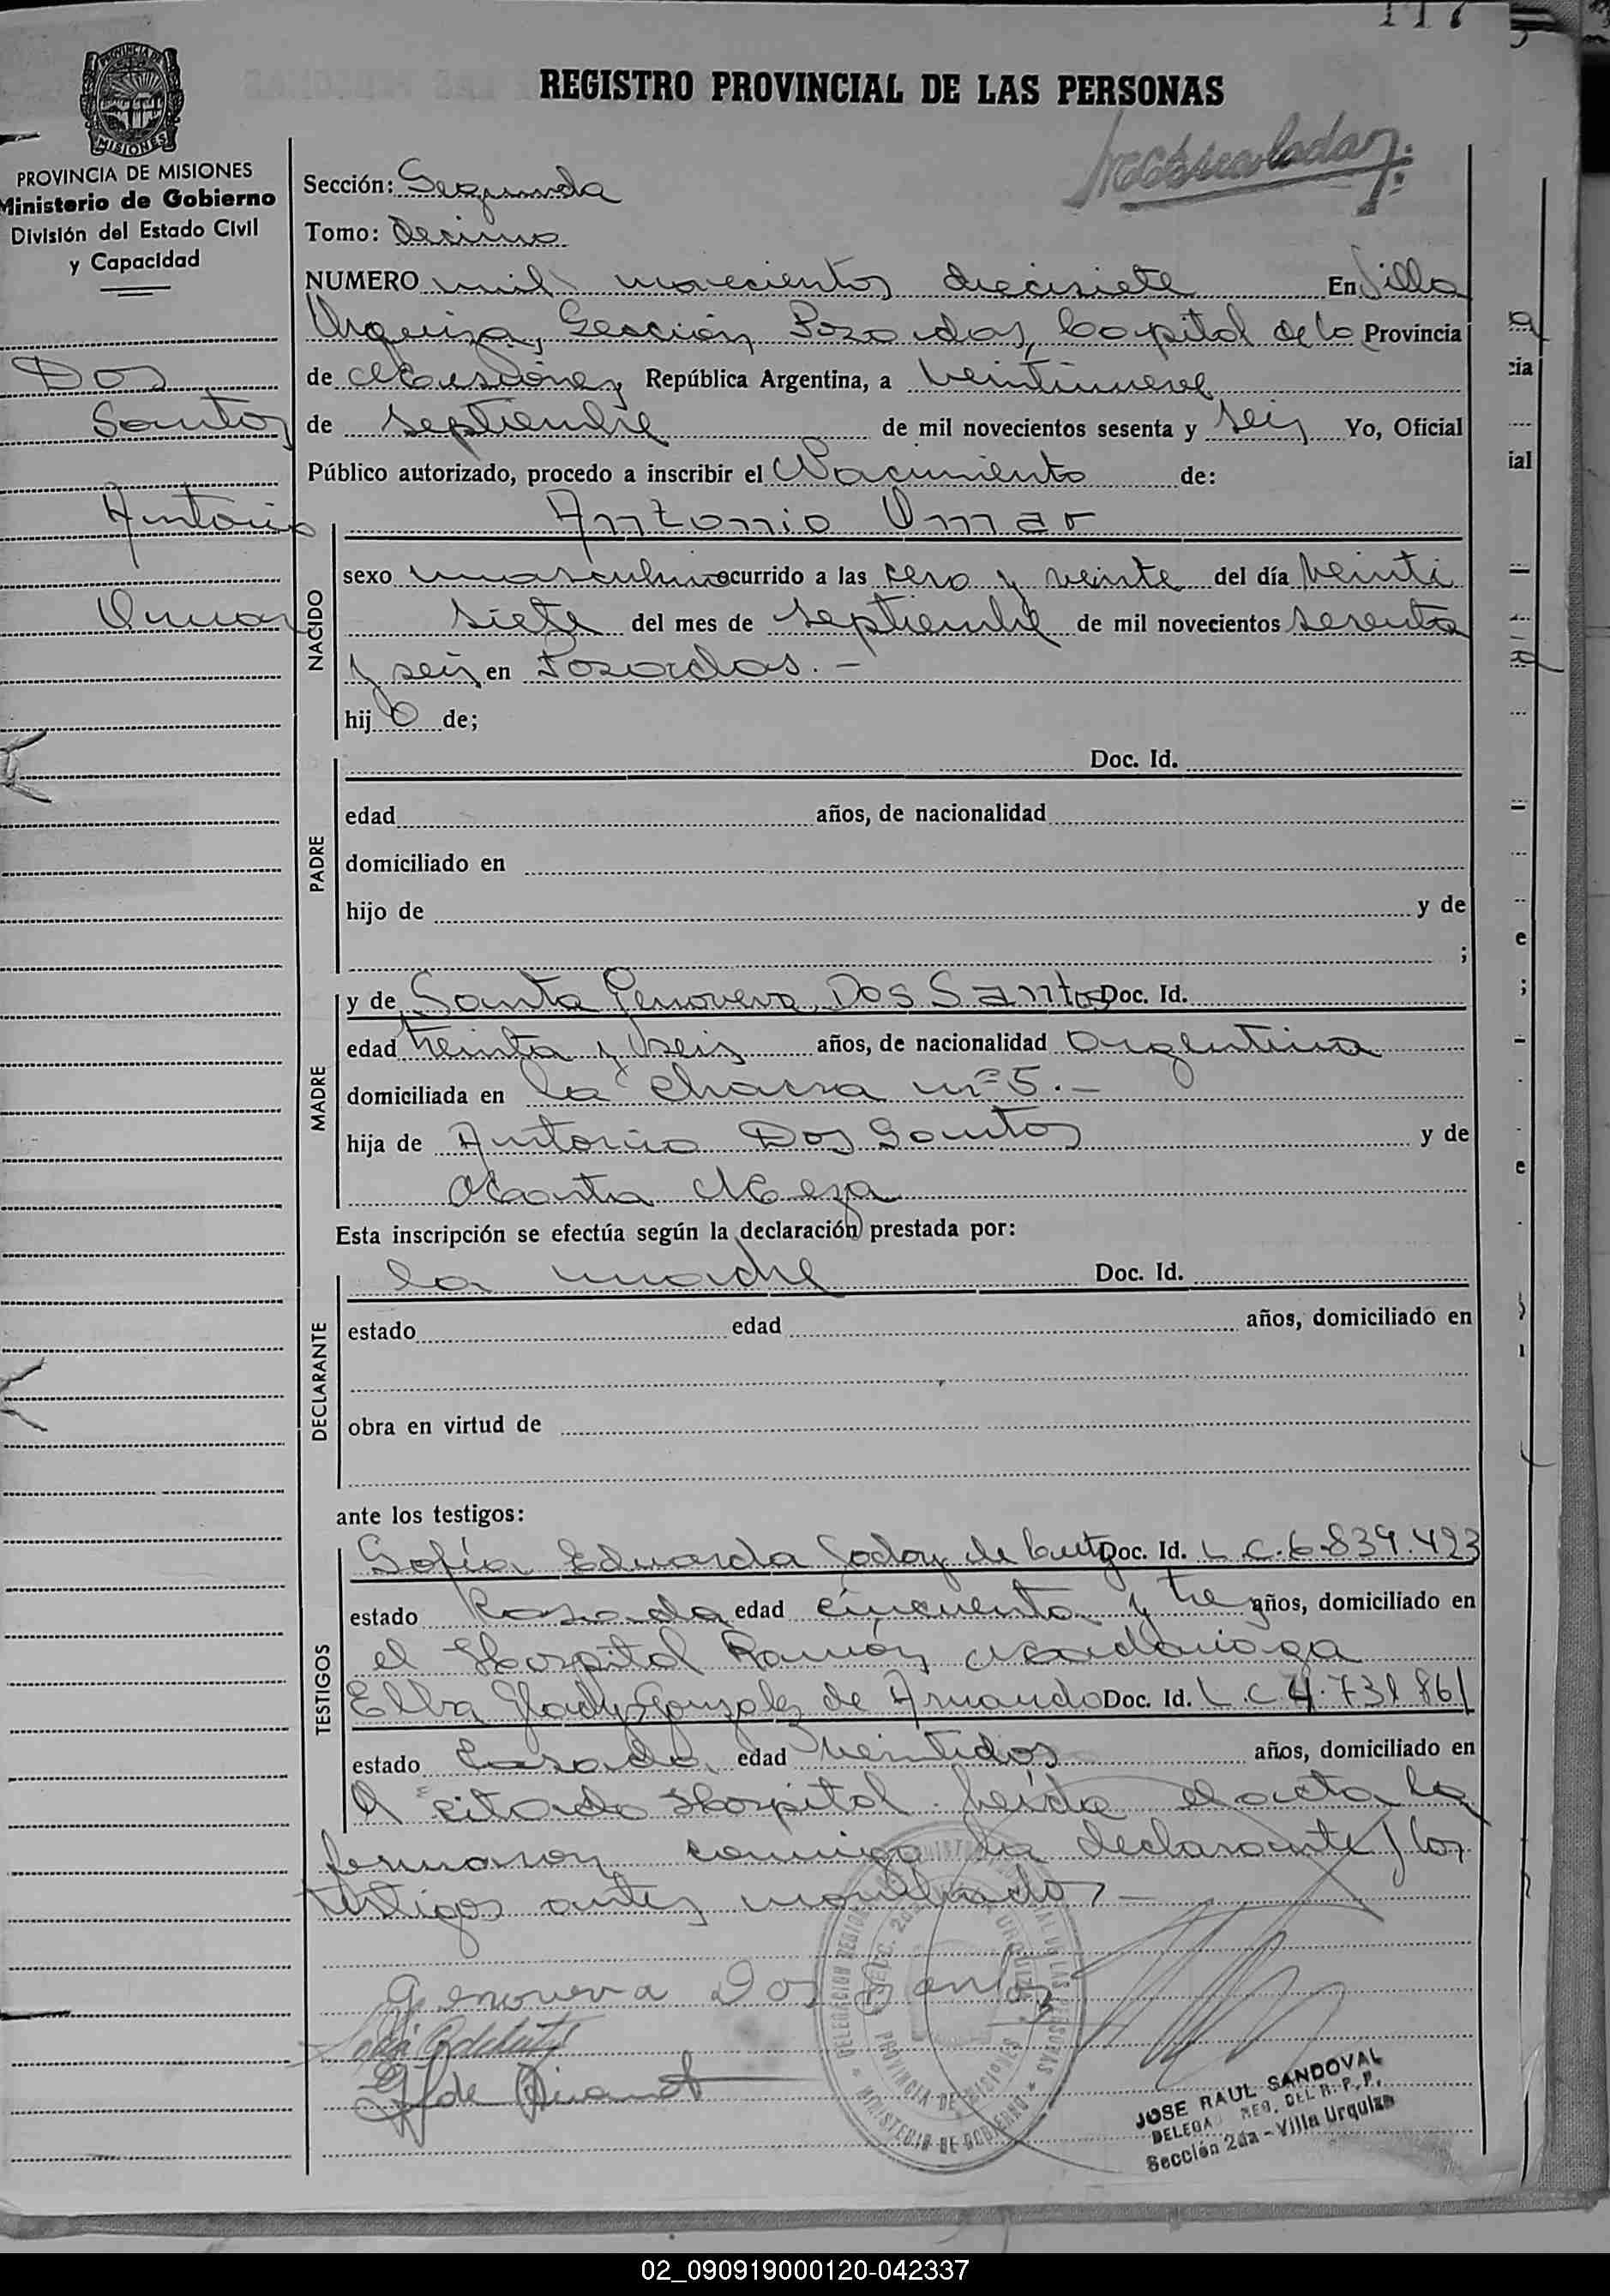 REGISTRO PROVINCIAL DE LAS PERSONAS
PROVINCIA DE MISIONES
MISIONES
PROVINCIA DE MISIONES
Ministerio de Gobierno
División del Estado Civil
y Capacidad
Dos
Santos
Antonio
Omar
Sección: Segunda
Tomo: Decimo
NUMERO mil novecientos diecisiete En Villa
Urquiza, Sección Posadas, Capital de la Provincia
de Misiones República Argentina, a veintinueve
de septiembre de mil novecientos sesenta y seis Yo, Oficial
Público autorizado, procedo a inscribir el Nacimiento de:
NACIDO
Antonio Omar
sexo masculino ocurrido a las cero y veinte del día veinti
siete del mes de septiembre de mil novecientos sesenta
y seis en Posadas.-
hij o de;
PADRE
Doc. Id.
edad años, de nacionalidad
domiciliado en
hijo de y de
;
MADRE
y de Santa Genoveva Dos Santos Doc. Id.
edad treinta y seis años, de nacionalidad Argentina
domiciliada en la chacra nº 5.-
hija de Antonio Dos Santos y de
Marta Meza
Esta inscripción se efectúa según la declaración prestada por:
DECLARANTE
la madre Doc. Id.
estado edad años, domiciliado en
obra en virtud de
ante los testigos:
TESTIGOS
Sofía Eduarda Godoy de Doc. Id. L.C.6.839.423
estado Casada edad cincuenta y tre años, domiciliado en
el Hospital Ramón Madariaga
Elba Gladys Gonzalez de Doc. Id. L.C 4.731.861
estado Casada edad veintidos años, domiciliado en
el citado Hospital. Leída el acta la
firmaron conmigo la declarante y los
testigos antes nombrados.-
Genoveva Dos Santos
PROVINCIA DE MISIONES
MINISTERIO DE GOBIERNO
JOSE RAUL SANDOVAL
DELEGA REG. DEL R. P. P.
Sección 2da - Villa Urquiza
02_090919000120-042337